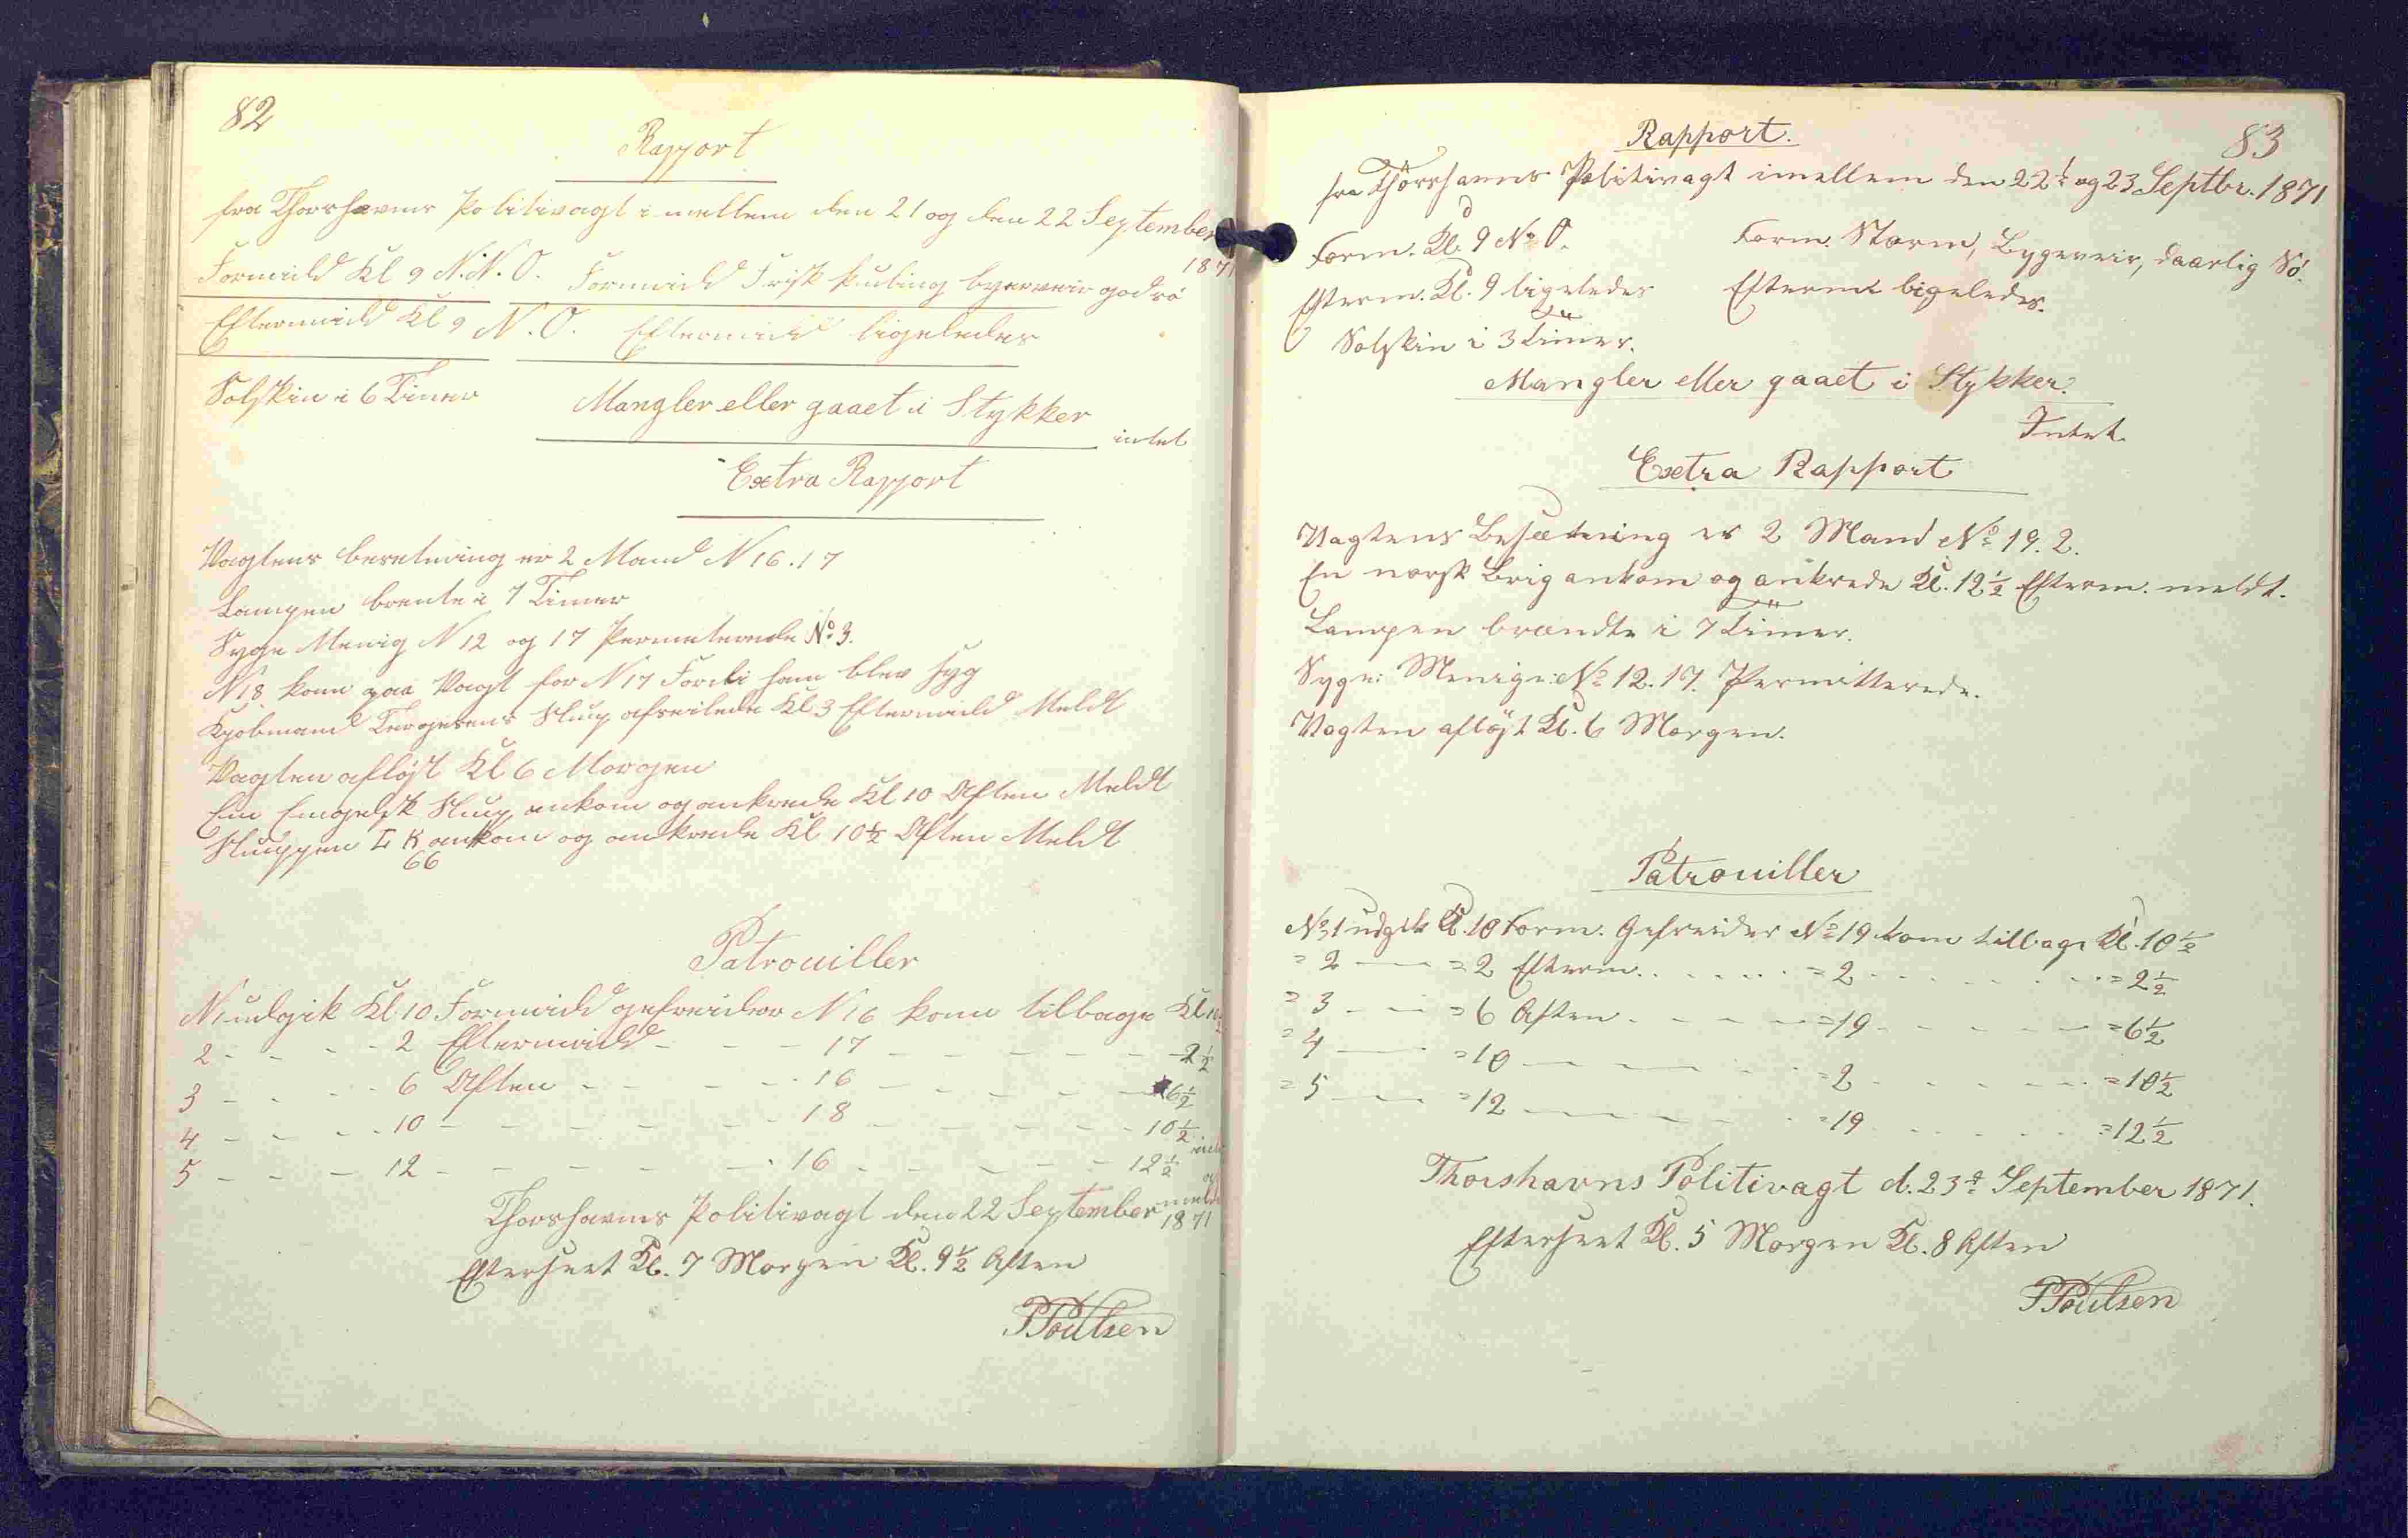 82
Rapport
fra Thorshavns Politivagt imellem den 21 og den 22 September
1871
Formidd Kl 9 N.N.O. Formidd Frisk kuling byerveir god sö
Eftermidd Kl 9 N.O. Eftermidd ligeledes
Solskin i 6 Timer
Mangler eller gaaet i Stykker
intet
Extra Rapport
Vagtens besetning er 2 Mand N 16.17
Lampen brente i 7 Timer
Syge Menig N 12 og 17 Permeterede No 3.
N 18 kom paa Vagt for N 17 Fordi ham blev syg
Kjobmand Slup afseilede Kl 3 Eftermidd Meldt
Vagten aflöst Kl 6 Morgen
Een Engelsk Slup ankom og ankrede Kl 10 Aften Meldt
Sluppen L K ankom og ankrede Kl 10½ Aften Meldt
66
Patrouiller
N 1 udgik Kl 10 Formidd gefreider N 16 kom tilbage Kl 10½
2 - - - - 2 Eftermidd - - - 17 - - - - - - 2½
3 - - - - 6 Aften - - - - 16 - - - - - 6½
4 - - - - 10 - - - - - - 18 - - - - - - 10½
5 - - - 12 - - - - - - 16 - - - - - 12½
Thorshavns Politivagt den 22 September
1871
Efterseet Kl. 7 Morgen Kl. 9½ Aften
PPoulsen
83
Rapport.
fra Thörshavns Politivagt imellem den 22d og 23 Septbr. 1871
Form. Kl. 9 N.O. Form. Storm, Bygeveir, daarlig Sö.
Efterm. Kl. 9 ligeledes Efterm ligeledes.
Solskin i 3 Timer.
Mangler eller gaaet i Stykker.
Intet.
Extra Rapport
Vagtens Besætning er 2 Mand No 19. 2.
En norsk Brig ankom og ankrede Kl. 12½ Efterm. meldt.
Lampen brændte i 7 Timer.
Syge: Menige: No 12. 17. Permitterede.
Vagten aflöst Kl. 6 Morgen.
Patrouiller
No 1 udgik Kl. 10 Form. Gefreider No 19 kom tilbage Kl. 10½
= 2 — = 2 Efterm. . . . . . = 2 - - - - - = 2½
= 3 - - = 6 Aften. - - - = 19 - - - - - = 6½
= 4 — = 10 — - - - - = 2 - - - - - = 10½
= 5 — = 12 — - - - - = 19 - - - - - = 12½
Thorshavns Politivagt d. 23d September 1871.
Efterseet Kl. 5 Morgen Kl. 8 Aften
PPoulsen